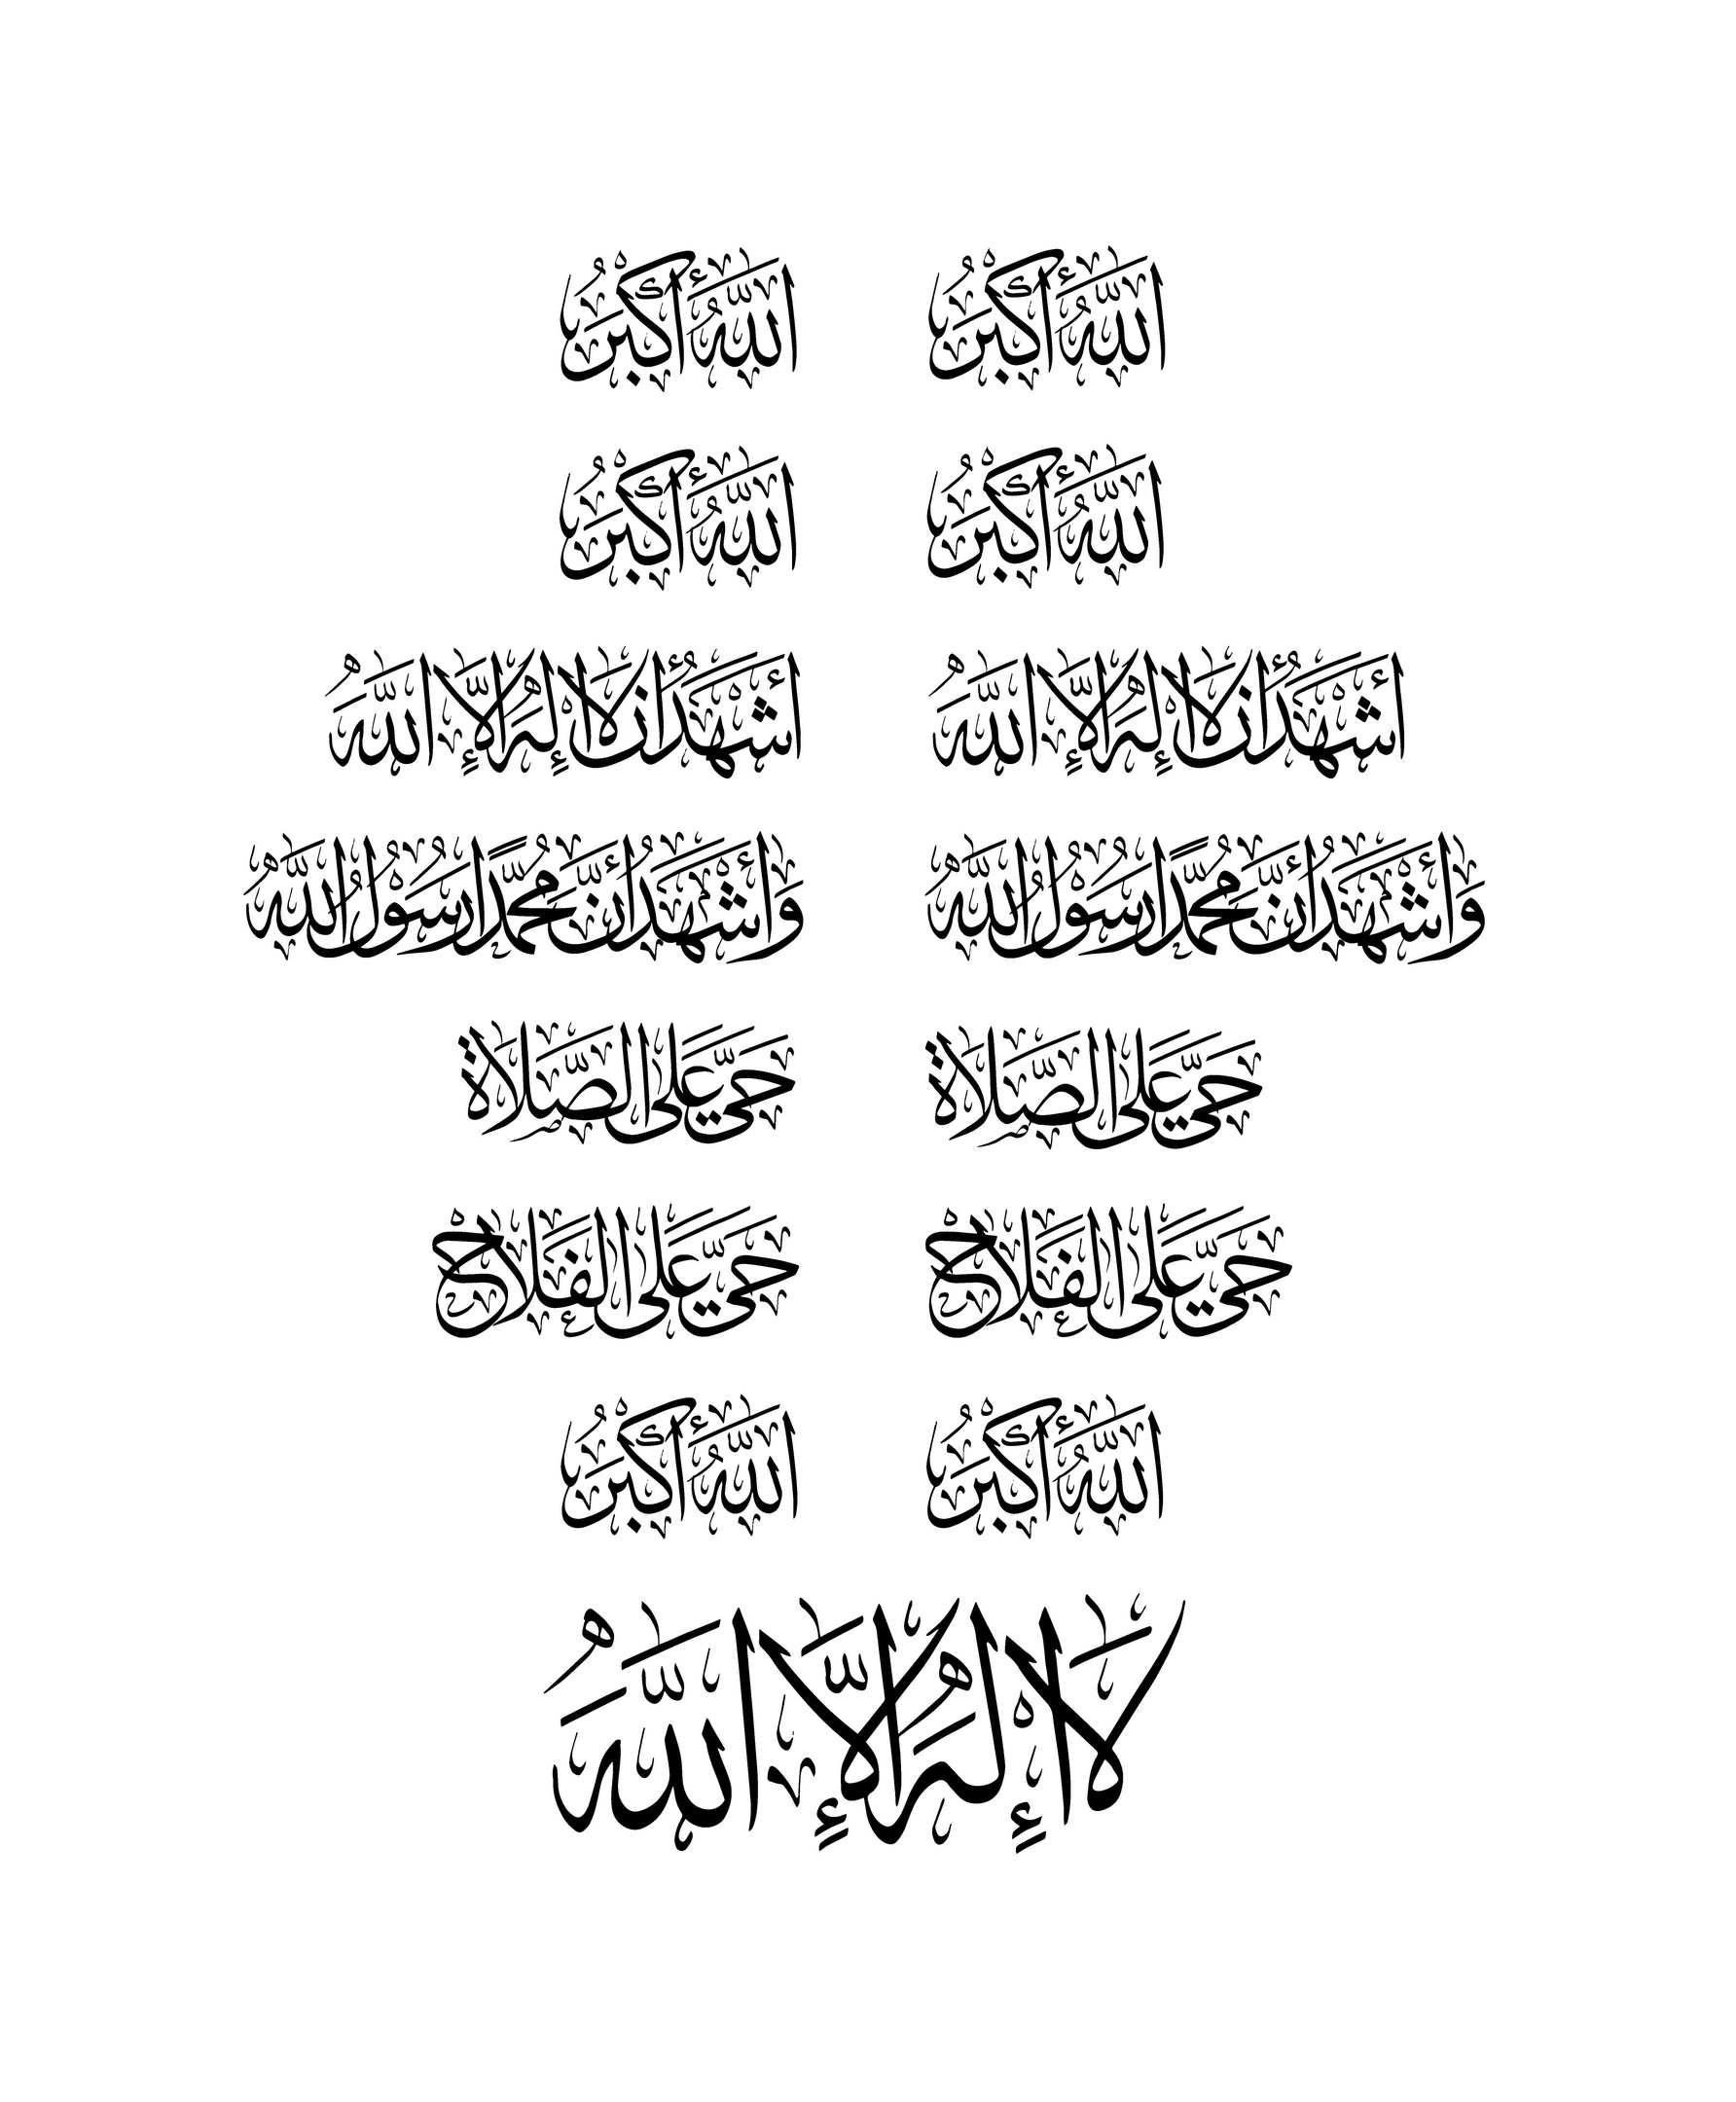 اللهُ أَكْبَرُ اللهُ أَكْبَرُ
اللهُ أَكْبَرُ اللهُ أَكْبَرُ
أَشْهَدُ أَنْ لَا إِلٰهَ إِلَّا اللهُ أَشْهَدُ أَنْ لَا إِلٰهَ إِلَّا اللهُ
وَأَشْهَدُ أَنَّ مُحَمَّدًا رَسُولُ اللهِ وَأَشْهَدُ أَنَّ مُحَمَّدًا رَسُولُ اللهِ
حَيَّ عَلَى الصَّلَاة حَيَّ عَلَى الصَّلَاة
حَيَّ عَلَى الْفَلَاحْ حَيَّ عَلَى الْفَلَاحْ
اللهُ أَكْبَرُ اللهُ أَكْبَرُ
لَا إِلٰهَ إِلَّا اللهُ